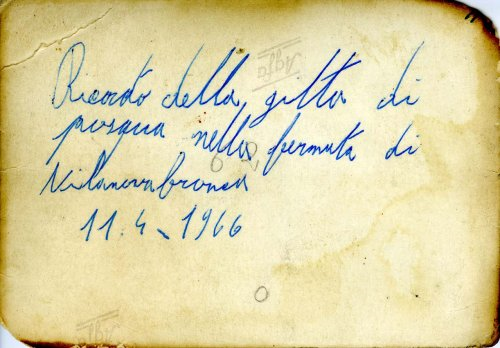 Ricordo della gitta di
pasqua nella fermata di
Vilanovafranca
11.4-1966
Agfa